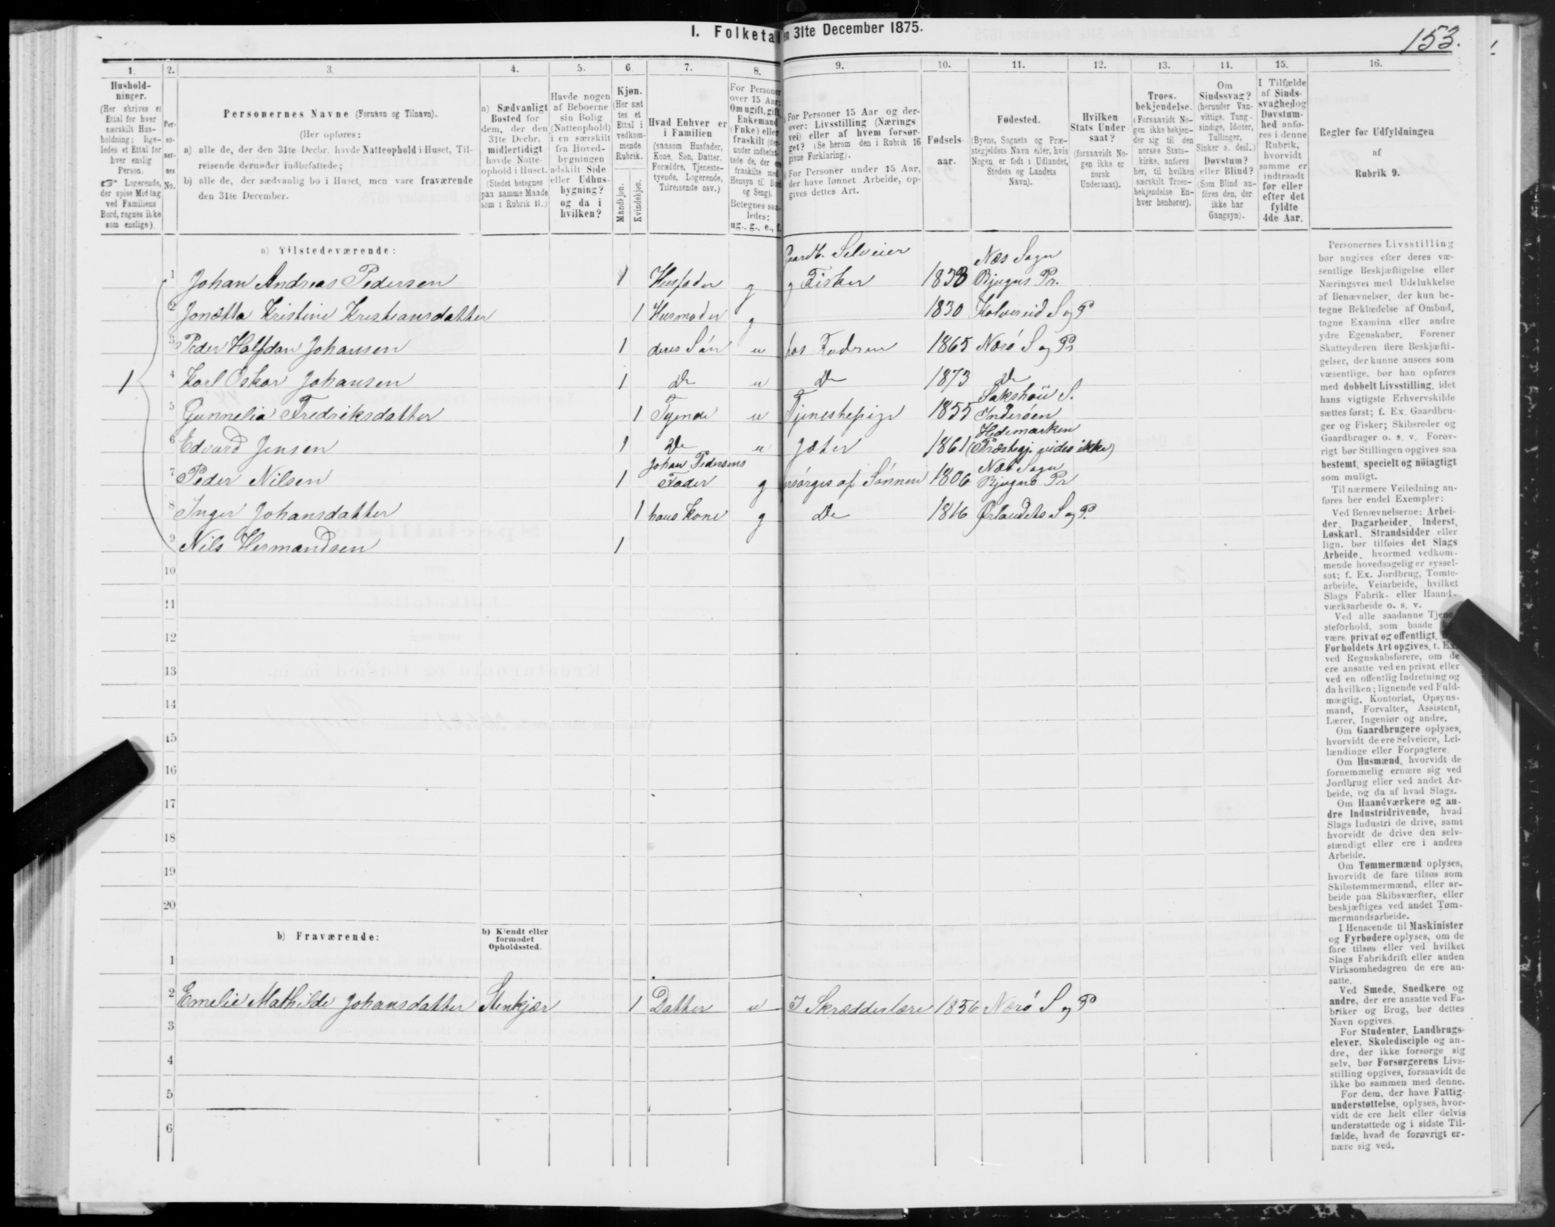 I. Folketa en 31te December 1875.
153.
1. 2. 3. 4. 5. 6. 7. 8. 9. 10. 11. 12. 13. 14. 15. 16.
Hushold-
ninger.
(Her skrives et
Ettal for hver
særskilt Hus-
holdning; lige-
ledes et Ettal for
hver enslig
Person.
☞ Logerende,
der spise Middag
ved Familiens
Bord, regnes ikke
som enslige).
Per-
so-
ner-
nes
No.
Personernes Navne (Fornavn og Tilnavn).
(Her opføres:
a) alle de, der den 31te Decbr. havde Natteophold i Huset, Til-
reisende derunder indbefattede;
b) alle de, der sædvanlig bo i Huset, men vare fraværende
den 31te December.
a) Sædvanligt
Bosted for
dem, der den
31te Decbr.
midlertidigt
havde Natte-
ophold i Huset.
(Stedet betegnes
paa samme Maade
som i Rubrik 11.)
Havde nogen
af Beboerne
sin Bolig
(Natteophold)
i en særskilt
fra Hoved-
bygningen
adskilt Side
eller Udhus-
bygning?
og da i
hvilken?
Kjøn.
(Her sæt
tes et
Ettal i
vedkom-
mende
Rubrik.
Mandkjøn.
Kvindekjøn.
Hvad Enhver er
i Familien
(saasom Husfader,
Kone, Søn, Datter,
Forældre, Tjeneste-
tyende, Logerende,
Tilreisende osv.)
For Person
over 15 Aar
Om ugift, gift,
Enkemand
(Enke) eller
fraskilt
Betegnes saa-
ledes:
ug., g., e., f.
For Personer 15 Aar og der-
over: Livsstilling (Nærings
vei) eller af hvem forsør-
get? (Se herom den i Rubrik 16
givne Forklaring).
For Personer under 15 Aar,
der have lønnet Arbeide, op-
gives dettes Art.
Fødsels-
aar.
Fødested.
(Byens, Sognets og Præ-
stegjeldets Navn eller, hvis
Nogen er født i Udlandet,
Stedets og Landets
Navn).
Hvilken
Stats Under
saat?
(forsaavidt No-
gen ikke er
norsk
Undersaat).
Troes-
bekjendelse.
(Forsaavidt No-
gen ikke bekjen-
der sig til den
norske Stats-
kirke, anføres
her, til hvilken
særskilt Troes-
bekjendelse En-
hver henhører).
Om
Sindssvag?
(herunder Van-
vittige, Tung-
sindige, Idioter,
Tullinger,
Sinker o. desl.)
Døvstum?
eller Blind?
(Som Blind an-
føres den, der
ikke har
Gangsyn).
I Tilfælde
af Sinds-
svaghed og
Døvstum-
hed anfø-
res i denne
Rubrik,
hvorvidt
samme er
indtraadt
før eller
efter det
fyldte
4de Aar.
Regler for Udfyldningen
af
Rubrik 9.
a) Tilstedeværende:
Gaardb. Selveier
1 Johan Andreas Pedersen 1 Husfader g og Fisker 1833 Næs Sogn Bjugns Pr.
2 Jonetta Kristine Kristiansdatter 1 Husmoder g 1830 Kolvereid S og P
3 Peder Halfdan Johansen 1 deres Søn u hos Fadren 1865 Nærø S og Pr
1
4 Karl Oskar Johansen 1 do u do 1873 do
5 Gunnelia Fredriksdatter 1 Tyende u Tjenestepige 1855 Sakshoüg S. Inderøen
6 Edvard Jensen 1 do u Gjæter 1861 Hedemarken (Præstegj. vides ikke)
7 Peder Nilsen 1 Johan Pedersens Fader g forsørges af Sønnen 1806 Næs Sogn Bjugns Pr
8 Inger Johansdatter 1 hans Kone g do 1816 Ørlandets S og P.
9 Nils Hermandsen 1
10
11
12
13
14
15
16
17
18
19
20
b) Fraværende:
b) Kjendt eller
formodet
Opholdssted.
1
2 Emelie Mathilde Johansdatter Stenkjær 1 Datter u I Skrædderlære 1856 Nærø S og P
3
4
5
6
Personernes Livsstilling
bør angives efter deres væ-
sentlige Beskjæftigelse eller
Næringsvei med Udelukkelse
af Benævnelser, der kun be-
tegne Beklædelse af Ombud,
tagne Examina eller andre
ydre Egenskaber. Forener
Skatteyderen flere Beskjæfti-
gelser, der kunne ansees som
væsentlige, bør han opføres
med dobbelt Livsstilling, idet
hans vigtigste Erhvervskilde
sættes først; f. Ex. Gaardbru-
ger og Fisker; Skibsreder og
Gaardbruger o. s. v. Forøv-
rigt bør Stillingen opgives saa
bestemt, specielt og nøiagtigt
som muligt.
Til nærmere Veiledning an-
føres her endel Exempler:
Ved Benævnelserne: Arbei-
der, Dagarbeider, Inderst,
Løskarl, Strandsidder eller
lign. bør tilføies det Slags
Arbeide, hvormed vedkom-
mende hovedsagelig er syssel-
sat; f. Ex. Jordbrug, Tomte-
arbeide, Veiarbeide, hvilket
Slags Fabrik- eller Haand-
værksarbeide o. s. v.
Ved alle saadanne Tjene
steforhold, som baade
være privat og offentligt,
Forholdets Art opgives, f. Ex
ved Regnskabsførere, om de
ere ansatte ved en privat eller
ved en offentlig Indretning og
da hvilken; lignende ved Fuld-
mægtig, Kontorist, Opsyns-
mand, Forvalter, Assistent,
Lærer, Ingeniør og andre.
Om Gaardbrugere oplyses,
hvorvidt de ere Selveiere, Lei-
lændinge eller Forpagtere.
Om Husmænd, hvorvidt de
fornemmelig ernære sig ved
Jordbrug eller ved andet Ar-
beide, og da af hvad Slags.
Om Haandværkere og an-
dre Industridrivende, hvad
Slags Industri de drive, samt
hvorvidt de drive den selv-
stændigt eller ere i andres
Arbeide.
Om Tømmermænd oplyses,
hvorvidt de fare tilsøs som
Skibstømmermænd, eller ar-
beide paa Skibsværfter, eller
beskjæftiges ved andet Tøm-
mermandsarbeide.
I Henseende til Maskinister
og Fyrbødere oplyses, om de
fare tilsøs eller ved hvilket
Slags Fabrikdrift eller anden
Virksomhedsgren de ere an-
satte.
Ved Smede, Snedkere og
andre, der ere ansatte ved Fa-
briker og Brug, bør dettes
Navn opgives.
For Studenter, Landbrugs-
elever, Skoledisciple og an-
dre, der ikke forsørge sig
selv, bør Forsørgerens Livs-
stilling opgives, forsaavidt de
ikke bo sammen med denne.
For dem, der have Fattig-
understøttelse, oplyses, hvor-
vidt de ere helt eller delvis
understøttede og i sidste Til-
fælde, hvad de forøvrigt er-
nære sig ved.